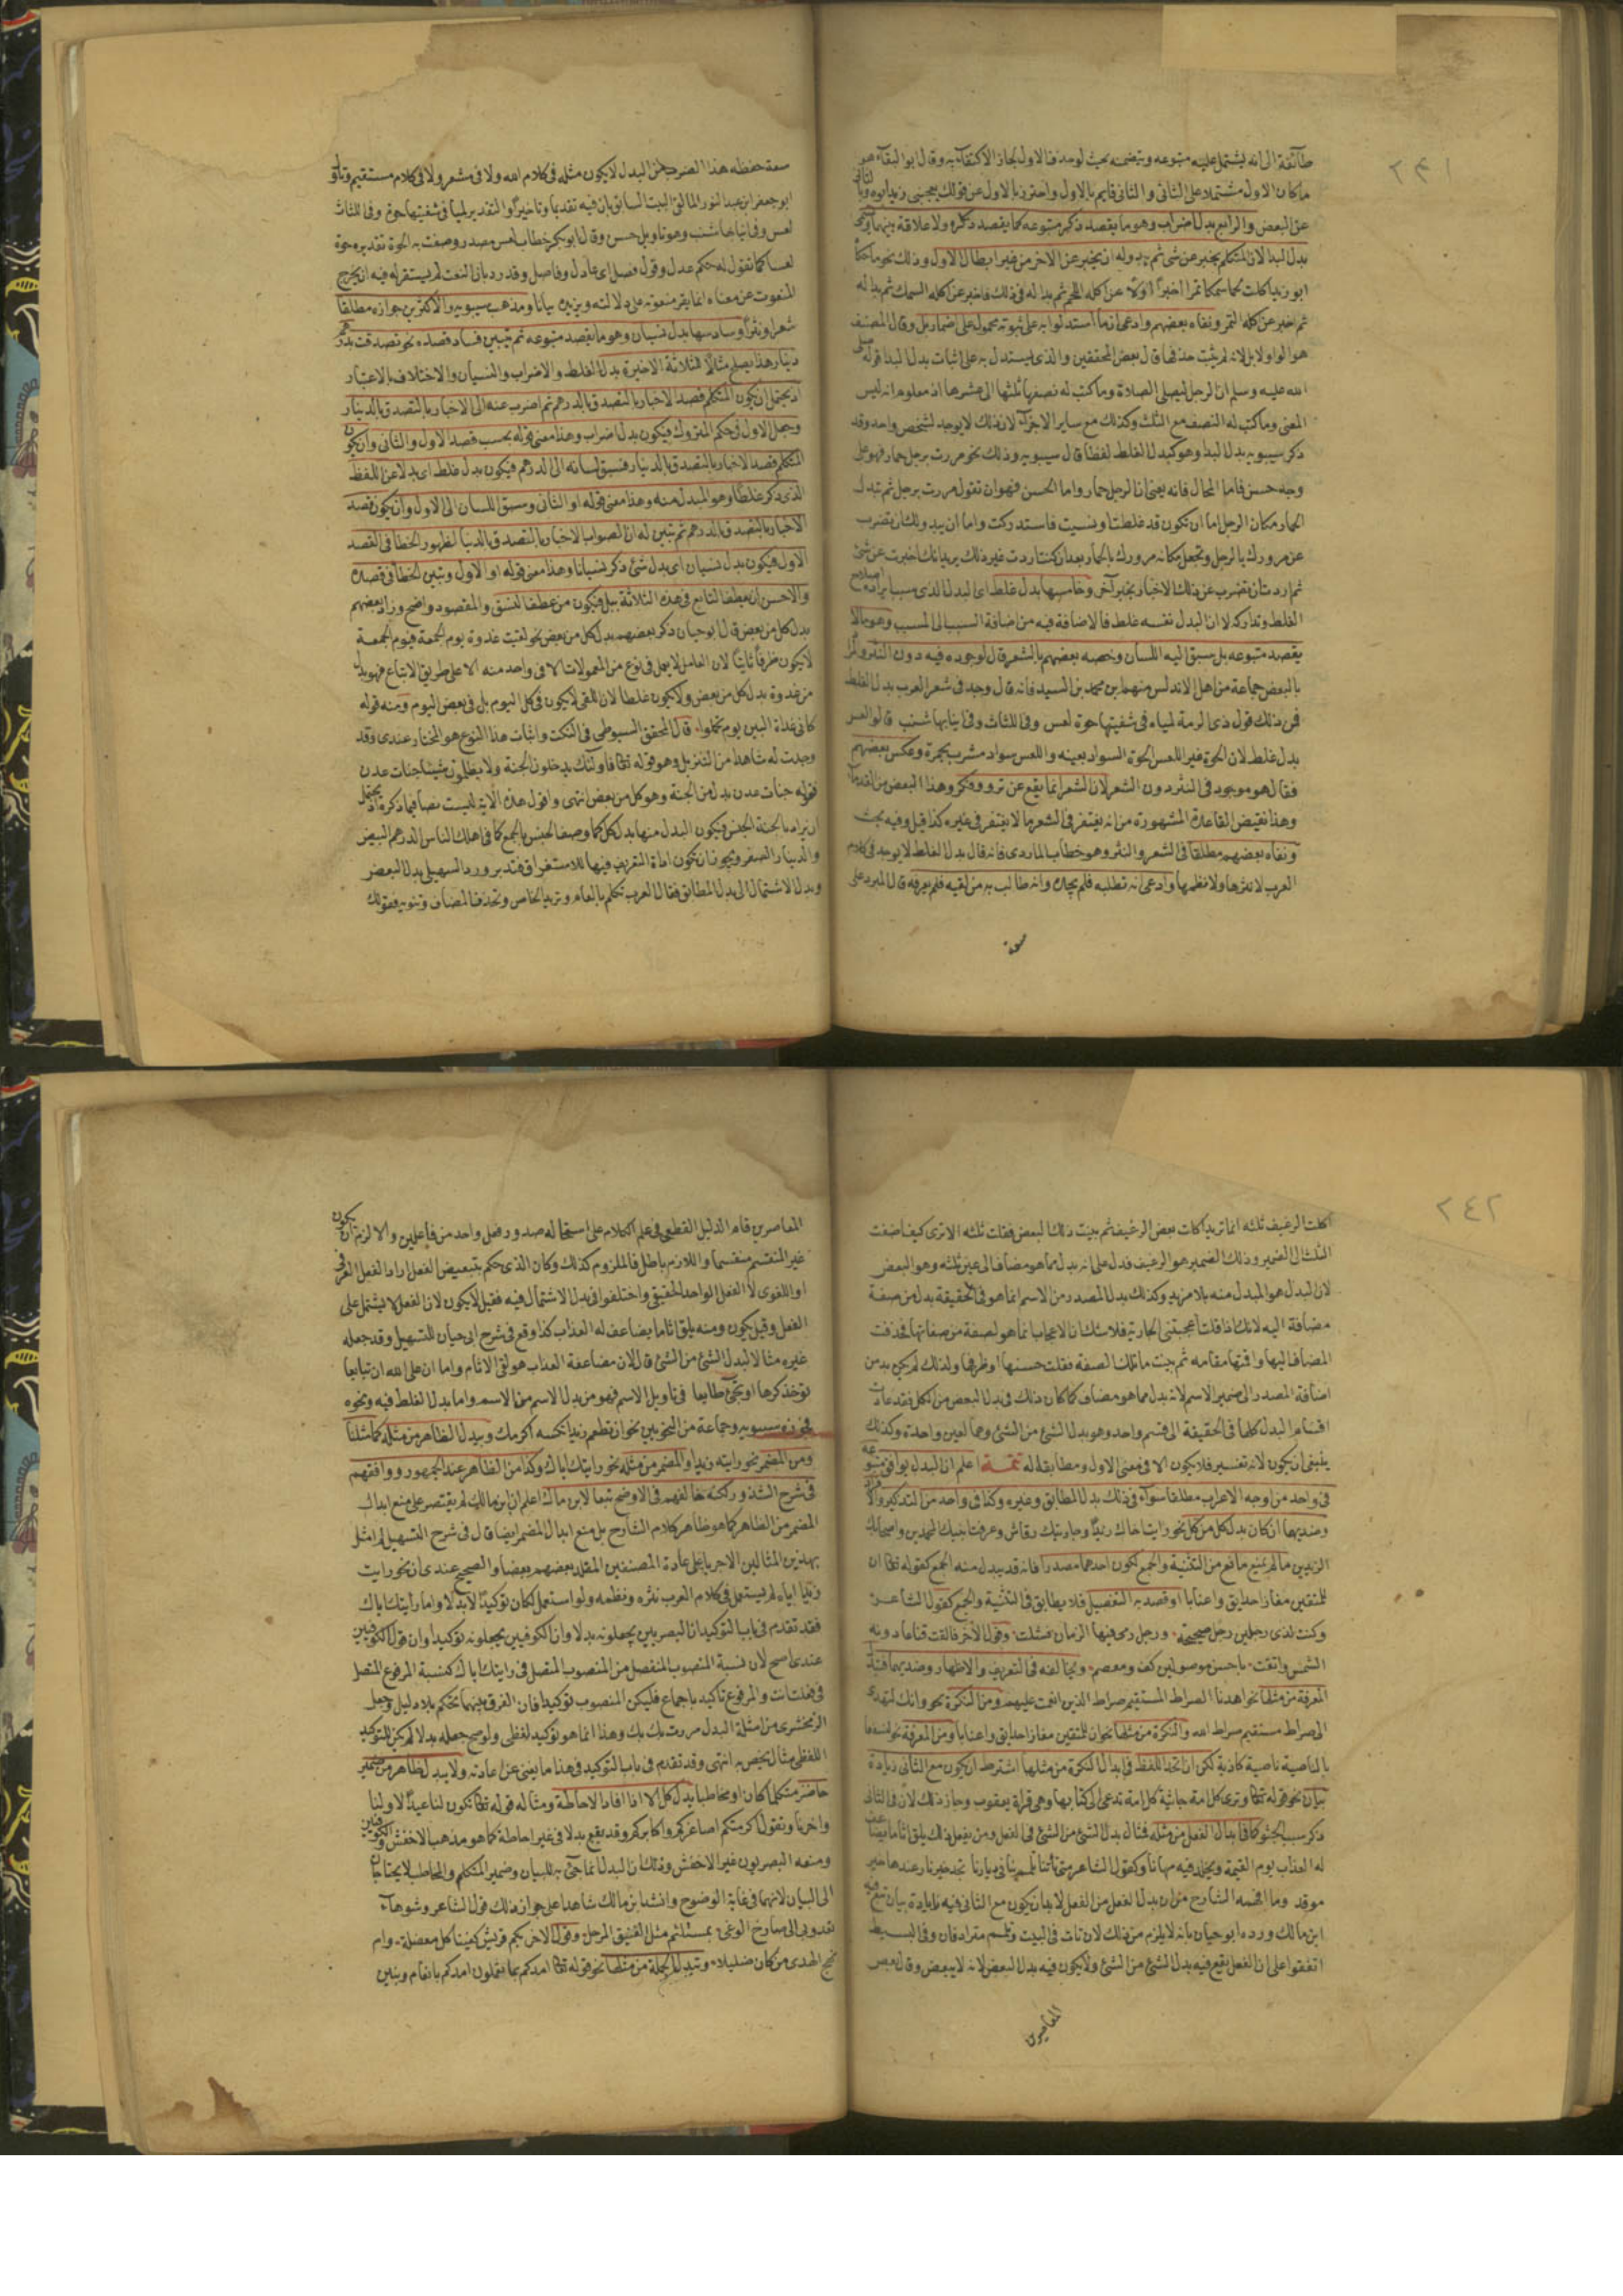 ٢٤١
طائفة الى انه يشتمل عليه متبوعه ويتضمنه بحيث لوحذفنا الاول لجاز الاكتفاء به وقال ابوالبقاء هو
ماكان الاول مشتملا على الثانى والثانى قايم بالاول واحترز بالاول عن قولك يعجبنى زيد ابوه وبالثانى
عن البعض والرابع بدل اضراب وهو ما يقصد ذكر متبوعه كما يقصد ذكره ولا علاقة بينهما ويسمى
بدل البدا لان المتكلم يخبر عن شئ ثم يبدوله ان يخبر عن الاخر من غير ابطال الاول وذلك نحو ماحكا
ابو زيد اكلت لحما سمكا تمرا اخبر اولا عن اكله اللحم ثم بدا له فى ذلك فاخبر عن اكله السمك ثم بدا له
ثم اخبر عن اكله التمر ونفاه بعضهم وادعى ان ما استدلوا به على ثبوته محمول على اضمار بل وقال المصنف
هو الواو لا بل لانه لم يثبت حذفها قال بعض المحققين والذى يستدل به على اثبات بدل البدا قوله صلى
الله عليه وسلم ان الرجل ليصلى الصلاة وما كتب له نصفها ثلثها الى عشرها اذ معلوم انه ليس
المعنى وما كتب له النصف مع الثلث وكذلك مع ساير الاجزاء لان ذلك لا يوجد لشخص واحد وقد
ذكر سيبويه بدل البدا وهو كبدل الغلط لفظا قال سيبويه وذلك نحو مررت برجل حمار فهو على
وجه حسن فاما المحال فانه يعنى ان الرجل حمار واما الحسن فهو ان تقول مررت برجل ثم تبدل
الحمار مكان الرجل اما ان تكون قد غلطت او نسيت فاستدركت واما ان يبدولك ان تضرب
عن مرورك بالرجل وتجعل مكانه مرورك بالحمار بعد ان كنت اردت غير ذلك يريد انك اخبرت عن شئ
ثم اردت ان تضرب عن ذلك الاخبار بخبر آخر وخامسها بدل غلط اى البدل الذى سببا
الغلط وتداركه لا ان البدل نفسه غلط فالاضافة فيه من اضافة السبب الى المسبب وهو مالا
يقصد متبوعه بل سبق اليه اللسان وخصه بعضهم بالشعر قال لوجوده فيه دون النثر
بالبعض جماعة من اهل الاندلس منهم ابن محمد بن السيد فانه قال وجد فى شعر العرب بدل الغلط
فمن ذلك قول ذى الرمة لمياء فى شفتيها حوة لعس وفى اللثاث وفى انيابها شنب قالوا لعس
بدل غلط لان الحوة غير اللعس الحوة السواد بعينه واللعس سواد مشرب بحمرة وعكس بعضهم
فقال هو موجود فى النثر دون الشعر لان الشعر انما يقع عن ترو وفكر وهذا البعض من القدماء
وهذا نقيض القاعدة المشهورة من انه يغتفر فى الشعر ما لا يغتفر فى غيره كذا قيل وفيه بحث
ونفاه بعضهم مطلقا فى الشعر والنثر وهو خطاب الماردى فانه قال بدل الغلط لا يوجد فى كلام
العرب لا نثرها ولا نظمها وادعى انه تطلبه فلم يجده وانه طالب به من لقيه فلم يعرفه قال المبرد على
سعة
سعة حفظه هذا الضرب من البدل لا يكون مثله فى كلام الله ولا فى شعر ولا فى كلام مستقيم وتاول
ابو جعفر ابن عبد النور المالقى البيت السابق بان فيه تقديما وتاخيرا والتقدير لميا فى شفتيها حوة وفى اللثاث
لعس وفى انيابها شنب وهو تاويل حسن وقال ابو بكر خطاب لعس مصدر وصفت به الحوة تقديره حوة
لعسا كما تقول له حكم عدل وقول فصل اى عادل وفاصل وقد رد بان النعت لم يستقر له فيه ان يخرج
المنعوت عن معناه انما يقر منعوته على دلالته ويزيده بيانا ومذهب سيبويه والاكثرين جوازه مطلقا
شعرا ونثرا وسادسها بدل نسيان وهو ما يقصد متبوعه ثم يتبين فساد قصده نحو تصدقت بدرهم
دينار هذا يصلح مثالا للثلاثة الاخيرة بدل الغلط والاضراب والنسيان والاختلاف بالاعتبار
اذ يحتمل ان يكون المتكلم قصد الاخبار بالتصدق بالدرهم ثم اضرب عنه الى الاخبار بالتصدق بالدينار
وجعل الاول فى حكم المتروك فيكون بدل اضراب وهذا معنى قوله بحسب قصد الاول والثانى وان يكون
المتكلم قصد الاخبار بالتصدق بالدينار فسبق لسانه الى الدرهم فيكون بدل غلط اى بدلا عن اللفظ
الذى ذكر غلطا وهو المبدل منه وهذا معنى قوله او الثانى وسبق اللسان الى الاول وان يكون قصد
الاخبار بالتصدق بالدرهم ثم تبين له ان الصواب الاخبار بالتصدق بالدينار لظهور الخطا فى القصد
الاول فيكون بدل نسيان اى بدل شئ ذكر نسيانا وهذا معنى قوله او الاول وتبين الخطا فى قصده
والاحسن ان يعطف التابع فى هذه الثلاثة ببل فيكون من عطف النسق والمقصود واضح وزاد بعضهم
بدل كل من بعض قال ابو حيان ذكر بعضهم بدل كل من بعض نحو لقيت غدوة يوم الجمعة فيوم الجمعة
لا يكون ظرفا ثانيا لان العامل لا يعمل فى نوع من المعمولات الا فى واحد منه الا على طريق الاتباع فهو بدل
من غدوة بدل كل من بعض ولا يكون غلطا لان اللقى لا يكون فى كل اليوم بل فى بعض اليوم ومنه قوله
كانى غداة البين يوم تحملوا قال المحقق السيوطى فى النكت واثبات هذا النوع هو المختار عندى وقد
وجدت له شاهدا من التنزيل وهو قوله تعالى فاولئك يدخلون الجنة ولا يظلمون شيئا جنات عدن
فقوله جنات عدن بدل من الجنة وهو كل من بعض انتهى واقول هذه الاية ليست نصا فيما ذكره اذ يحتمل
ان يراد بالجنة الجنس فيكون البدل منها بدل كل كما وصف الجنس بالجمع كما فى اهلك الناس الدرهم البيض
والدينار الصفر ويجوز ان تكون اداة التعريف فيها للاستغراق فتدبر ورد السهيلى بدل البعض
وبدل الاشتمال الى بدل المطابق فقال العرب تتكلم بالعام وتريد الخاص وتحذف المضاف وتنويه فقولك
٢٤٢
اكلت الرغيف ثلثه انما تريد اكلت بعض الرغيف ثم بينت ذلك البعض فقلت ثلثه الا ترى كيف اضفت
الثلث الى الضمير وذلك الضمير هو الرغيف فدل على انه بدل مما هو مضاف الى عين ثلثه وهو البعض
لان البدل هو المبدل منه بلا مزيد وكذلك بدل المصدر من الاسم انما هو فى الحقيقة بدل من صفة
مضافة اليه لانك اذا قلت اعجبتنى الجارية فلا شك ان الاعجاب انما هو لصفة من صفاتها فحذفت
المضاف اليها واقمتها مقامه ثم بينت ما تلك الصفة فقلت حسنها او ظرفها ولذلك لم يكن بد من
اضافة المصدر الى ضمير الاسم لانه بدل مما هو مضاف كما كان ذلك فى بدل البعض من الكل فقد عادت
اقسام البدل كلها فى الحقيقة الى قسم واحد وهو بدل الشئ من الشئ وهما لعين واحدة وكذلك
ينبغى ان يكون لانه تفسير فلا يكون الا فى معنى الاول ومطابقا له تتمة اعلم ان البدل يوافق متبوعه
فى واحد من اوجه الاعراب مطلقا سواء فى ذلك بدل المطابق وغيره وكذا فى واحد من التذكير والافراد
وضديهما ان كان بدل كل من كل نحو رايت اخاك زيدا وجاريتك رقاش وعرفت ابنيك المحمدين واصحابك
الزيدين ما لم يمنع مانع من التثنية والجمع لكون احدهما مصدرا فانه قد يبدل منه الجمع كقوله تعالى ان
للمتقين مفازا حدايق واعنابا او قصد به التفصيل فلا يطابق فى التثنية والجمع كقول الشاعر
وكنت لذى رجلين رجل صحيحة ورجل رمى فيها الزمان فشلت وقول الآخر فالقت قناعا دونه
الشمس واتقت باحسن موصولين كف ومعصم ويخالفه فى التعريف والاظهار وضديهما فتبدل
المعرفة من مثلها نحو اهدنا الصراط المستقيم صراط الذين انعمت عليهم ومن النكرة نحو وانك لتهدى
الى صراط مستقيم صراط الله والنكرة من مثلها نحو ان للمتقين مفازا حدايق واعنابا ومن المعرفة نحو لنسفعا
بالناصية ناصية كاذبة لكن ان اتحد اللفظ فى ابدال النكرة من مثلها اشترط ان يكون مع الثانى زيادة
بيان نحو قوله تعالى وترى كل امة جاثية كل امة تدعى الى كتابها وهى قراءة يعقوب وجاز ذلك لان فى الثانى
ذكر سبب الجثو كما فى ابدال الفعل من مثله فمثال بدل الشئ من الشئ فى الفعل ومن يفعل ذلك يلق اثاما يضاعف
له العذاب يوم القيمة ويخلد فيه مهانا وكقول الشاعر متى تأتنا تلمم بنا فى ديارنا تجد خير نار عندها خير
موقد وما افهمه الشارح من ان بدل الفعل من الفعل لا بد ان يكون مع الثانى فيه زيادة بيان تبع فيه
ابن مالك ورده ابو حيان بانه لا يلزم من ذلك لان تات فى البيت وتلمم مترادفان وفى البسيط
اتفقوا على ان الفعل يقع فيه بدل الشئ من الشئ ولا يكون فيه بدل البعض لانه لا يتبعض وقال بعض
المعاصرين
المعاصرين قام الدليل القطعى فى علم الكلام على استحالة صدور فعل واحد من فاعلين والا لزم ان يكون
غير المنقسم منقسما واللازم باطل فالملزوم كذلك وكان الذى حكم بتبعيض الفعل اراد الفعل العرفى
او اللغوى لا الفعل الواحد الحقيقى واختلفوا فى بدل الاشتمال فيه فقيل لا يكون لان الفعل لا يشتمل على
الفعل وقيل يكون ومنه يلق اثاما يضاعف له العذاب كذا وقع فى شرح ابى حيان للتسهيل وقد جعله
غيره مثالا لبدل الشئ من الشئ قال لان مضاعفة العذاب هو لقى الاثام واما ان على الله ان تبايعا
توخذ كرها او تجئ طايعا فى تاويل الاسم فهو من بدل الاسم من الاسم واما بدل الغلط فيه ونحوه
فجوزه سيبويه وجماعة من النحويين نحو ان تطعم زيدا تكسه اكرمك ويبدل الظاهر من مثله كما مثلنا
ومن المضمر نحو رايته زيدا والمضمر من مثله نحو رايتك اياك وكذا من الظاهر عند الجمهور ووافقهم
فى شرح الشذور لكنه خالفهم فى الاوضح تبعا لابن مالك اعلم ان ابن مالك لم يقتصر على منع ابدال
المضمر من الظاهر كما هو ظاهر كلام الشارح بل منع ابدال المضمر ايضا قال فى شرح التسهيل لم امثل
بهذين المثالين الا جريا على عادة المصنفين المقلد بعضهم بعضا والصحيح عندى ان نحو رايت
زيدا اياه لم يستعمل فى كلام العرب نثره ونظمه ولو استعمل لكان توكيدا لا بدلا واما رايتك اياك
فقد تقدم فى باب التوكيد ان البصريين يجعلونه بدلا وان الكوفيين يجعلونه توكيدا وان قول الكوفيين
عندى اصح لان نسبة المنصوب المنفصل من المنصوب المتصل فى رايتك اياك كنسبة المرفوع المتصل
فى فعلت انت والمرفوع تاكيد باجماع فليكن المنصوب توكيدا فان الفرق بينهما تحكم بلا دليل وجعل
الزمخشرى من امثلة البدل مررت بك بك وهذا انما هو توكيد لفظى ولو صح جعله بدلا لم يكن للتوكيد
اللفظى مثال يخصه انتهى وقد تقدم فى باب التوكيد فى هذا ما يغنى عن اعادته ولا يبدل ظاهر من ضمير
حاضر متكلما كان او مخاطبا بدل كل الا اذا افاد الاحاطة ومثاله قوله تعالى تكون لنا عيدا لاولنا
واخرنا وتقول اكرمتكم اصاغركم واكابركم وقد يقع بدلا فى غير احاطة كما هو مذهب الاخفش والكوفيين
ومنعه البصريون غير الاخفش وذلك ان البدل انما جئ به للبيان وضمير المتكلم والمخاطب لا يحتاجان
الى البيان لانهما فى غاية الوضوح وانشد ابن مالك شاهدا على جواز ذلك قول الشاعر وشوهاء
تعدو بى الى صارخ الوغى بمستلئم مثل الفنيق المرحل وقول الاخر بكم قريش كفينا كل معضلة وام
نهج الهدى من كان ضليلا وتبدل الجملة من مثلها نحو قوله تعالى امدكم بما تعلمون امدكم بانعام وبنين